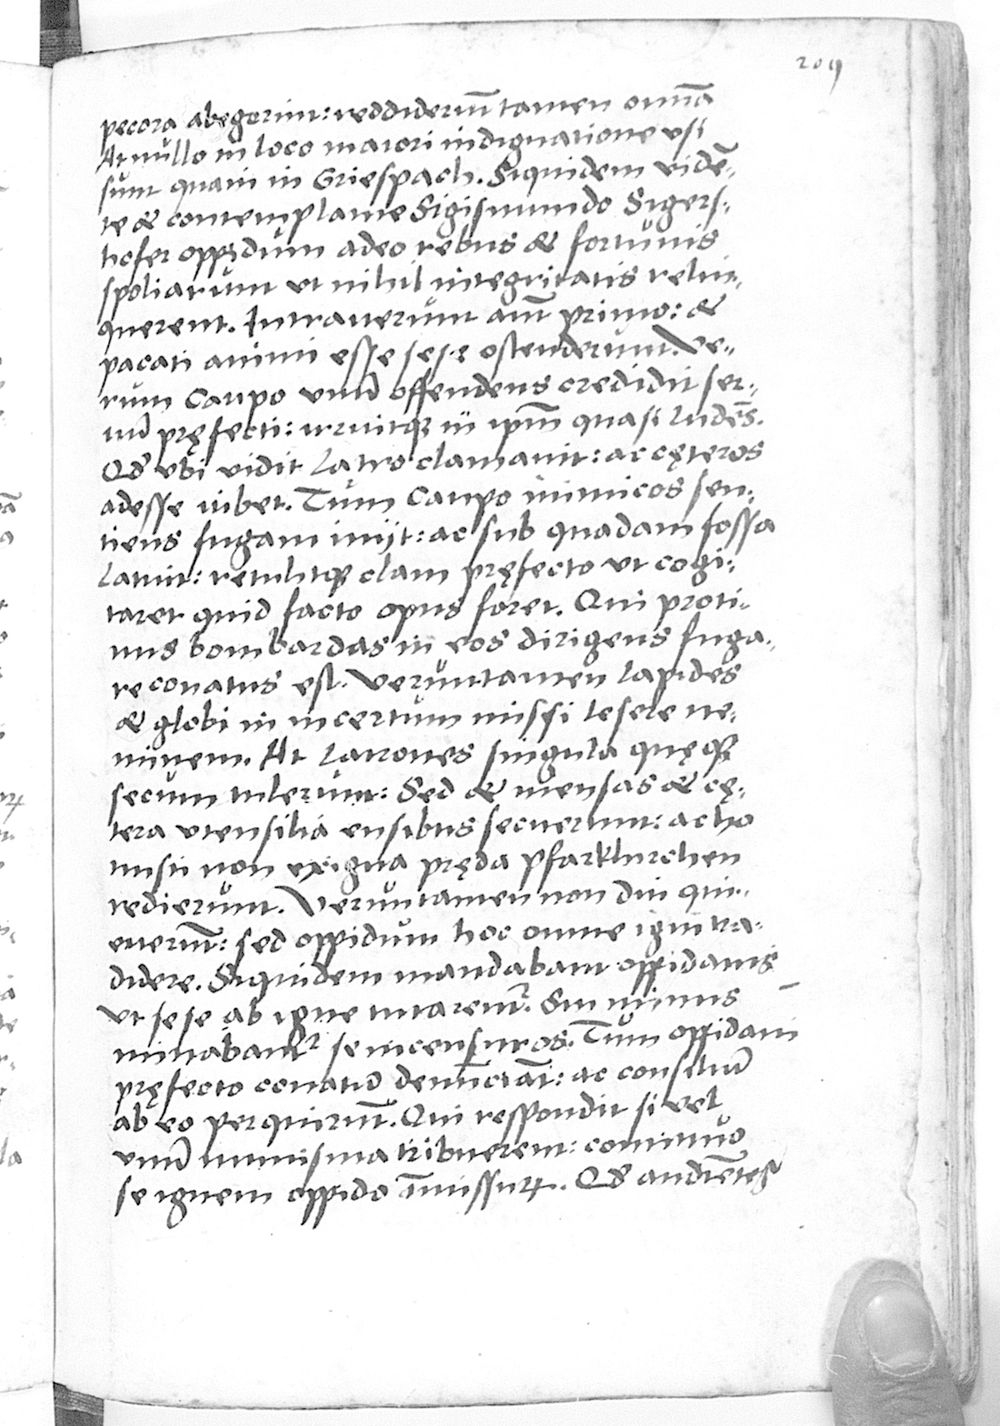 209
pecora abegerint: reddiderūt tamen omīa
At nullo in loco maiori indignatione vsi
sunt quam in Griespach. Siquidem vidē-
te & contemplante Sigismundo Sigers-
hofer oppidum adeo rebus & fortunis
spoliarunt ut nihil integritatis relin-
querent. Intrauerunt aūt primo: &
pacati animi esse sese ostenderunt. Ve-
rum Caupo vnū offendens credidit ser-
uū pręfecti: irruitq; in ipm̄ quasi ludēs.
Qd̕ vbi vidit latro clamauit: ac cęteros
adesse iubet. Tum Caupo inimicos sen-
tiens fugam inijt: ac sub quadam fossa
latuit: retulitq; clam pręfecto ut cogi-
taret quid facto opus foret. Qui proti-
nus bombardas in eos dirigens fuga-
re conatus est. Veruntamen lapides
& globi in incertum missi lesere ne-
minem. At latrones singula quęq;
secum tulerunt: Sed & mensas & cę-
tera vtensilia ensibus secuerunt: ac ho
nusti non exigua pręda Pfarkhirchen
redierunt. Veruntamen non diu qui-
euerūt: sed oppidum hoc omne igni tra-
didere. Siquidem mandabant oppidanis
Vt sese ab igne tutarent᷑. Sin minus
minabant᷑ se incensuros. Tum oppidani
pręfecto conatū denūciāt: ac consiliū
ab eo perquirūt. Qui respondit si vel
vnū numisma tribuerent: continuo
se ignem oppido īmissurꝝ. Qd̕ audiētes